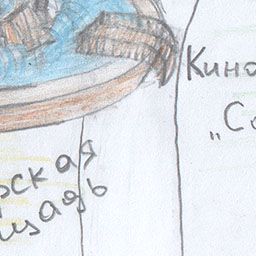 Кино
„Со
рская
щадь